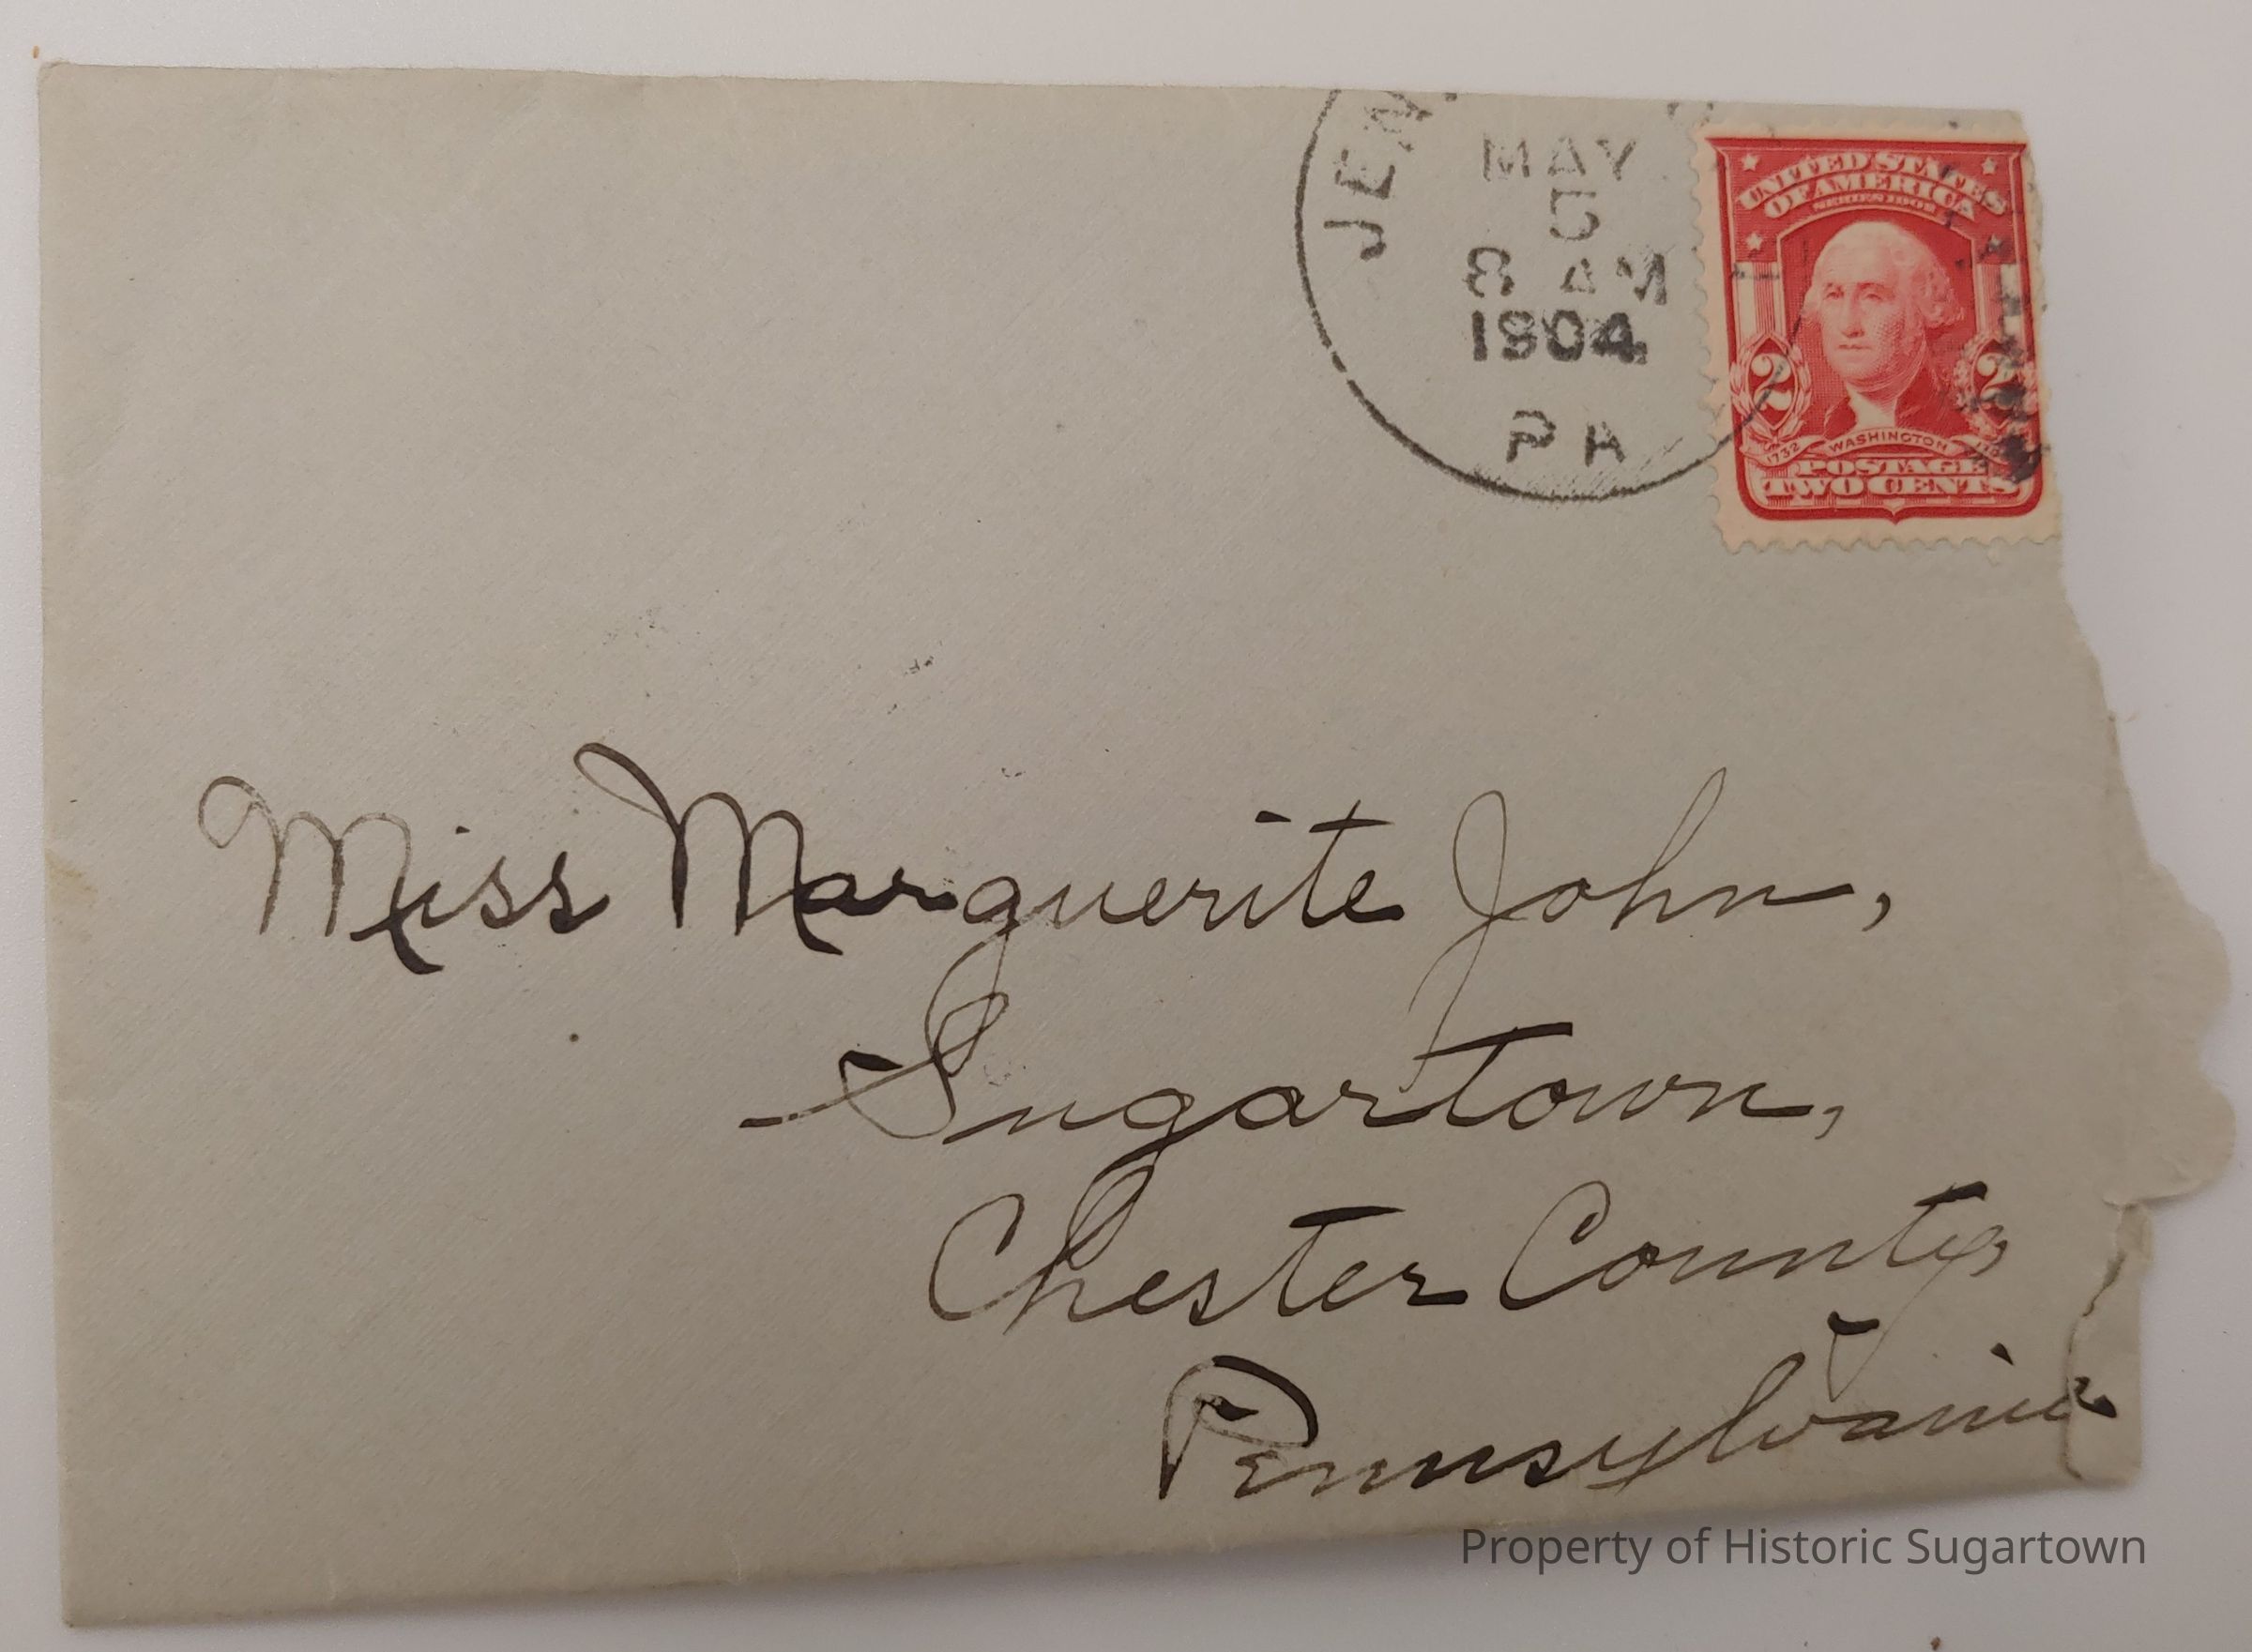 MAY
5
8 AM
1904
PA
UNITED STATES
OF AMERICA
SERIES 1902
2 2
1732 WASHINGTON
POSTAGE
TWO CENTS
Miss Marguerite John,
Sugartown,
Chester County,
Pennsylvania
Property of Historic Sugartown